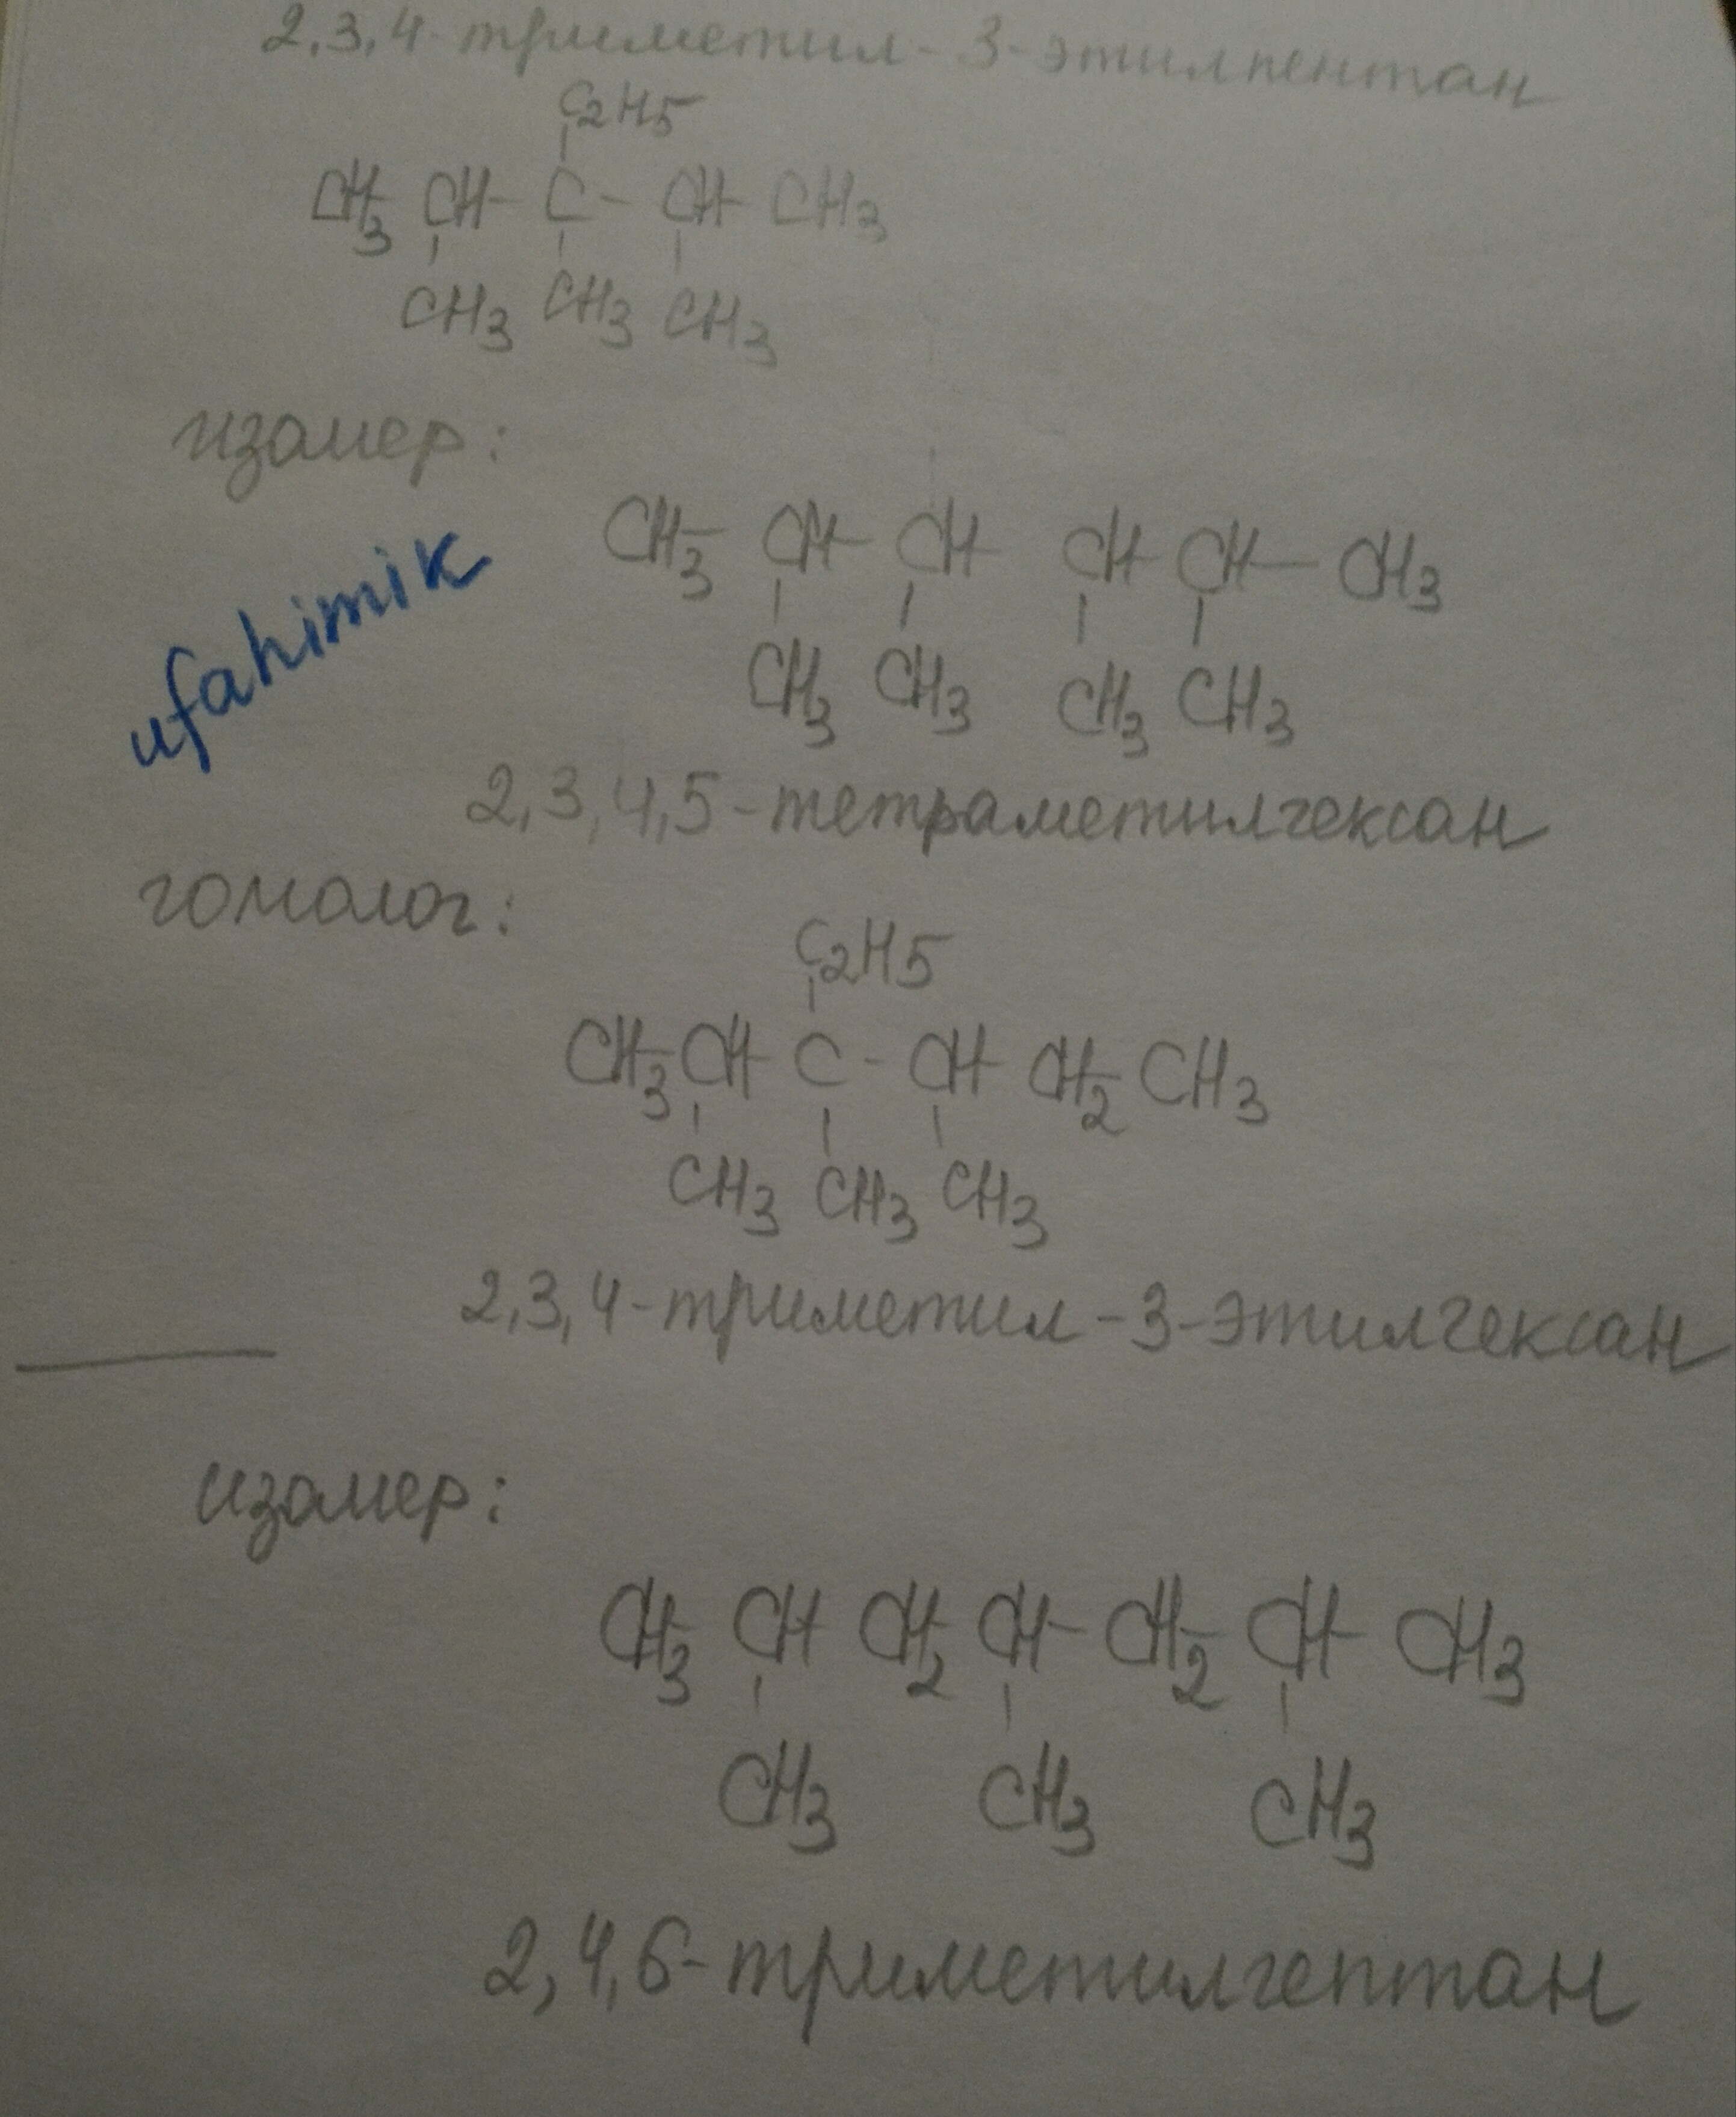 2,3,4-триметил-3-этилпентан
C2H5
CH3 CH- C- CH- CH3
CH3 CH3 CH3
изомер:
CH3- CH- CH- CH- CH- CH3
CH3 CH3 CH3 CH3
ufahimik
2,3,4,5-тетраметилгексан
гомолог:
C2H5
CH3- CH- C- CH- CH2- CH3
CH3 CH3 CH3
2,3,4-триметил-3-этилгексан
изомер:
CH3- CH- CH2- CH- CH2- CH- CH3
CH3 CH3 CH3
2,4,6-триметилгептан